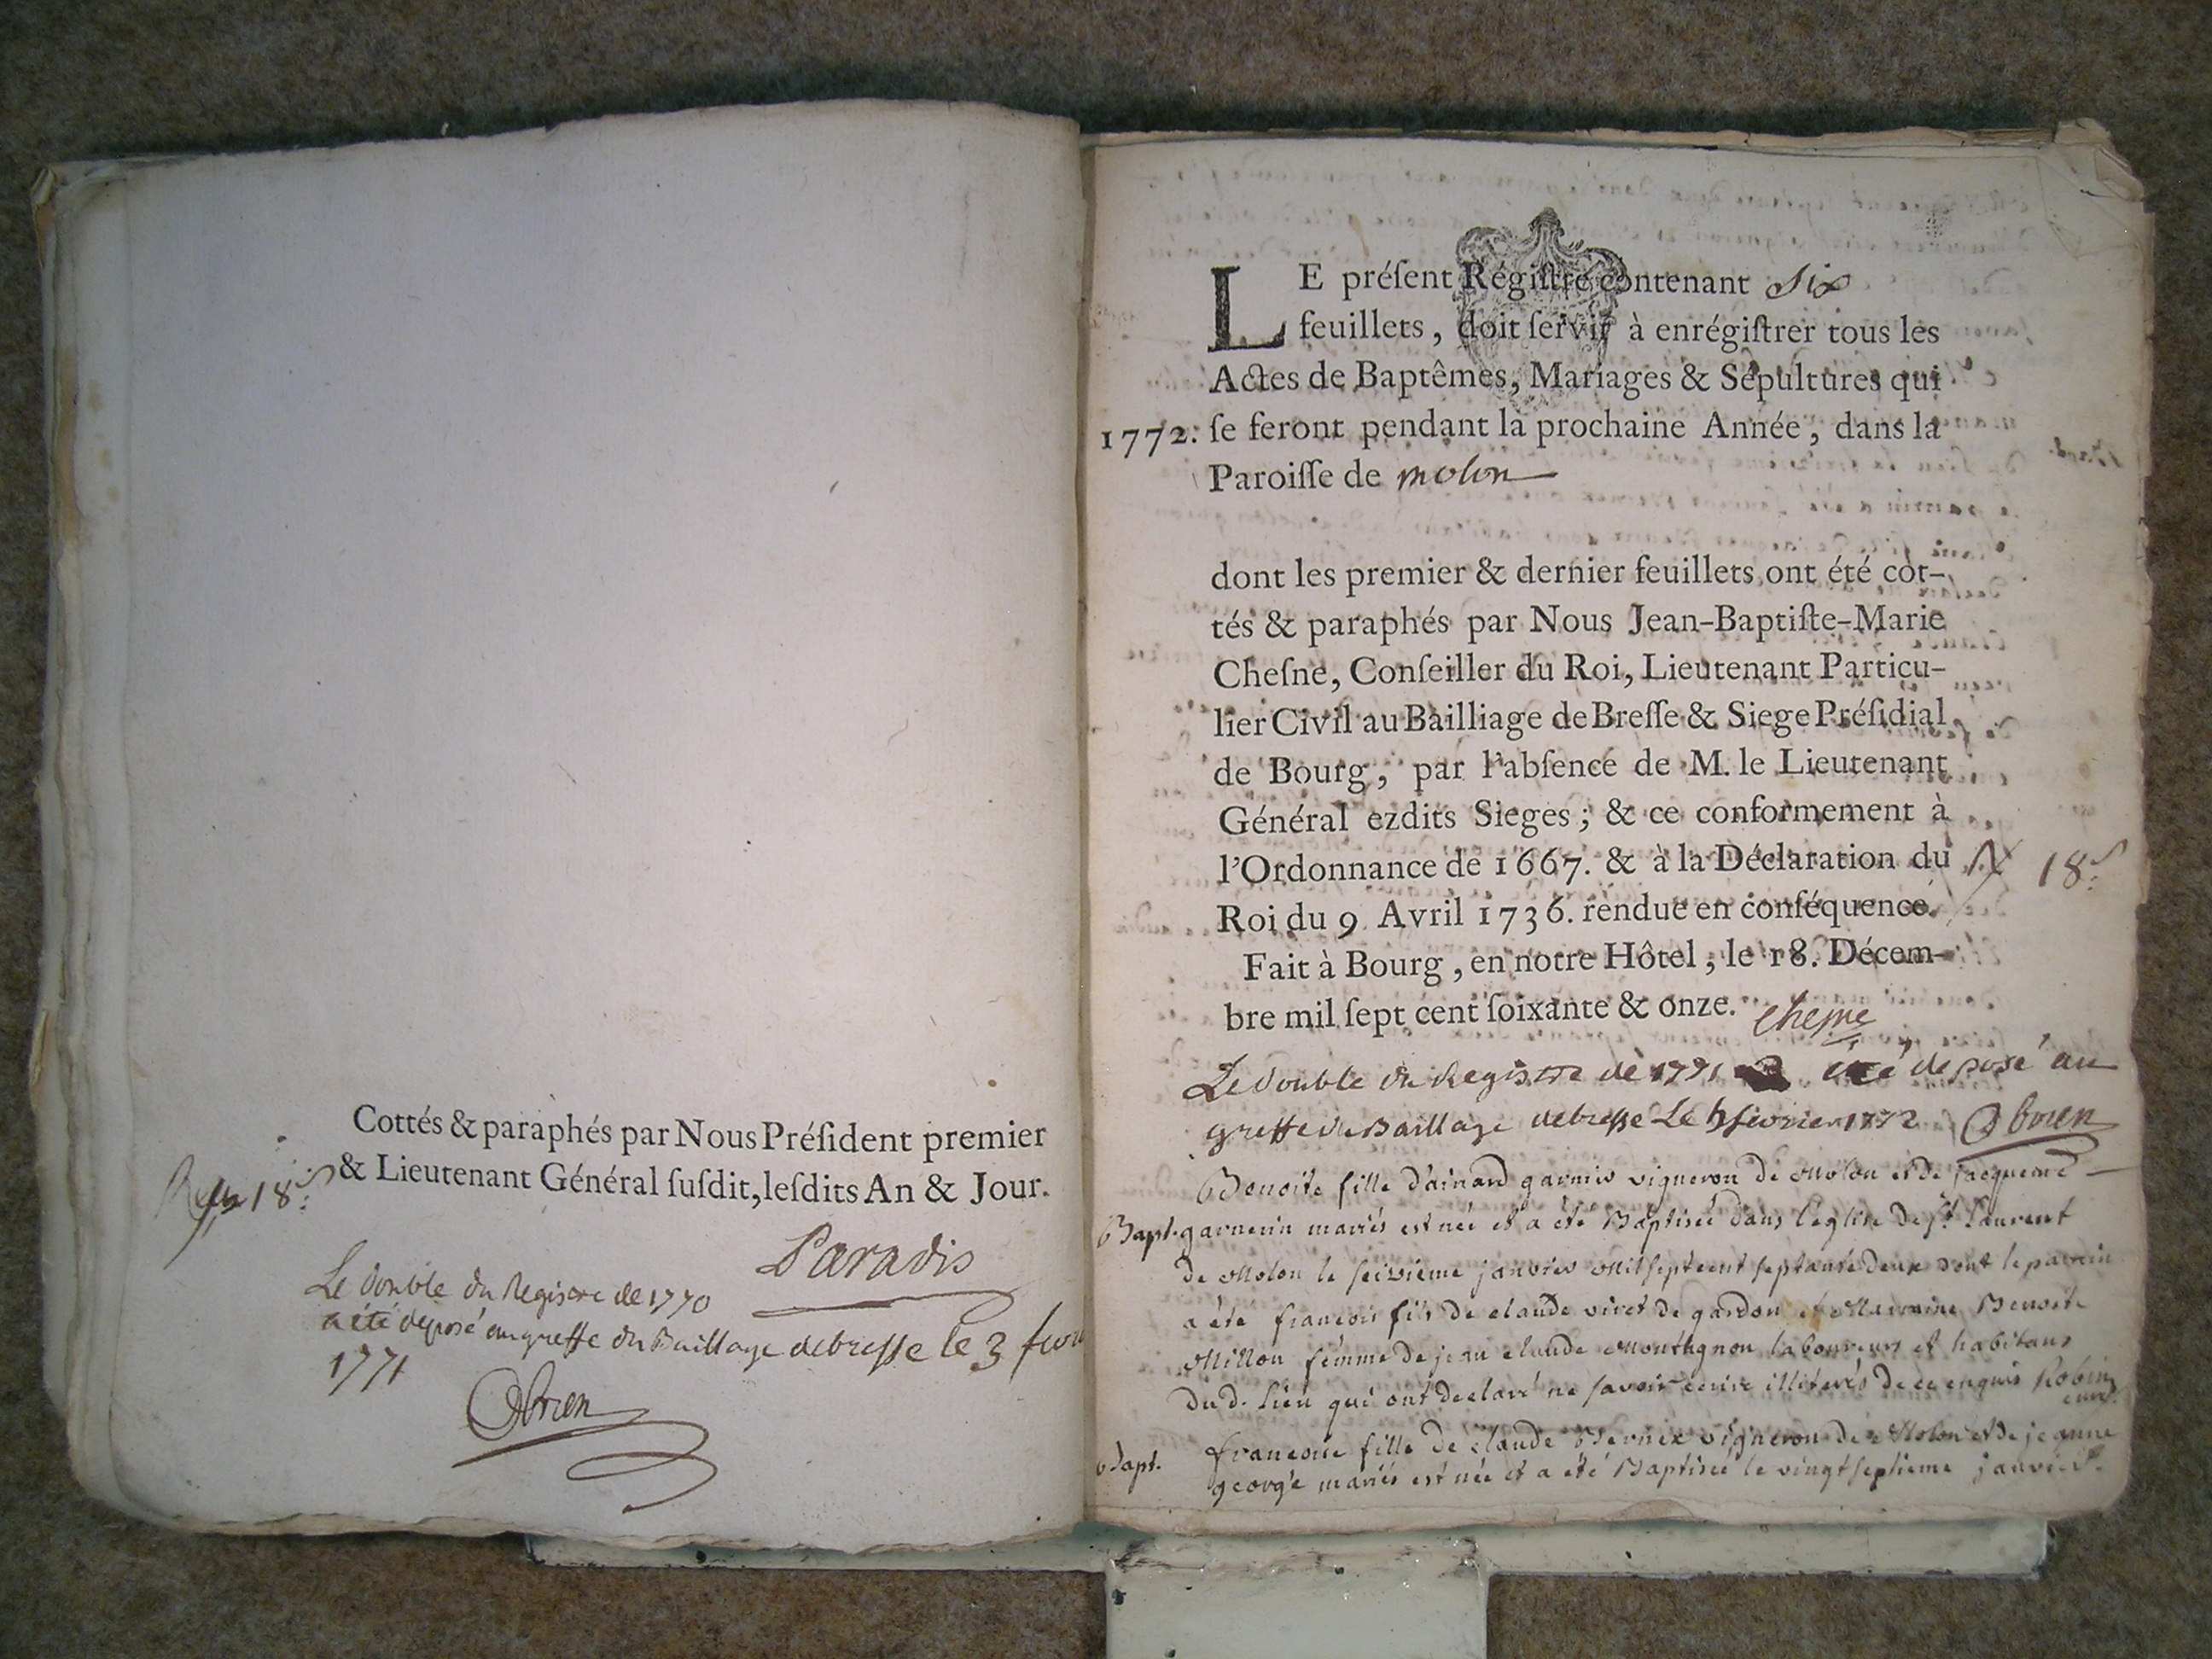 Cottés & paraphés par Nous Préſident premier
& Lieutenant Général ſuſdit, leſdits An & Jour.
18.s
Paradis
Le double du Registre de 1770
a été deposé au greffe du Baillage debresse le 3 fevr
1771
Obrien
LE préſent Régiſtre contenant Six
feuillets, doit ſervir à enrégiſtrer tous les
Actes de Baptêmes, Mariages & Sépultures qui
1772. ſe feront pendant la prochaine Année, dans la
Paroiſſe de molon
dont les premier & dernier feuillets ont été cot-
tés & paraphés par Nous Jean-Baptiſte-Marie
Cheſne, Conſeiller du Roi, Lieutenant Particu-
lier Civil au Bailliage de Breſſe & Siege Préſidial
de Bourg, par l'abſence de M. le Lieutenant
Général ezdits Sieges; & ce conformement à
l'Ordonnance de 1667. & à la Déclaration du
18.s
Roi du 9 Avril 1736. rendue en conſéquence.
Fait à Bourg, en notre Hôtel, le 18. Décem-
bre mil ſept cent ſoixante & onze. Chesne
Le double du Registre de 1771 a été deposé au
greffe du Baillage debresse Le 5 fevrier 1772 Obrien
Benoite fille d'ainard garnier vigneron de Molon et de jacqueme
Bapt. garnerin mariés est née et a été Baptisée dans l'eglise de St. Laurent
de Molon le seizieme janvier Mil sept cent septante deux dont le parrein
a été françois fils de claude viret de gardon et Marraine Benoite
Millon femme de jean claude Monthgnon laboureurs et habitans
dud. Lieu qui ont declaré ne savoir ecrire illiterés de ce enquis Robin
curé
Bapt. françoise fille de claude Bernix vigneron de Molon et de jeanne
george mariés est née et a été Baptisée le vingt septieme janvier